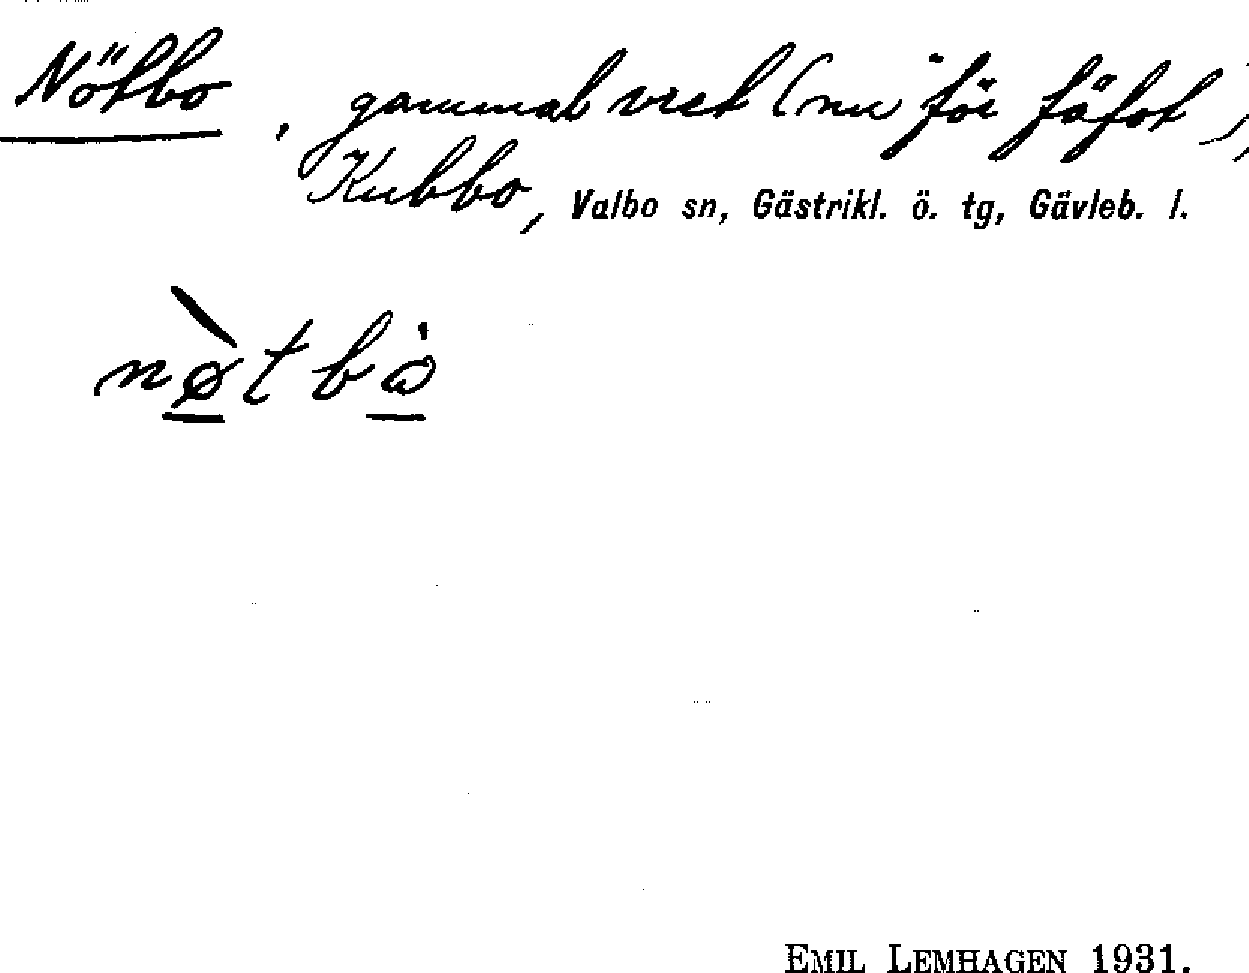 Nötbo, gammal vret (nu för fäfot),
Kubbo, Valbo sn, Gästrikl. ö. tg, Gävleb. l.
nø̀tbò
EMIL LEMHAGEN 1931.